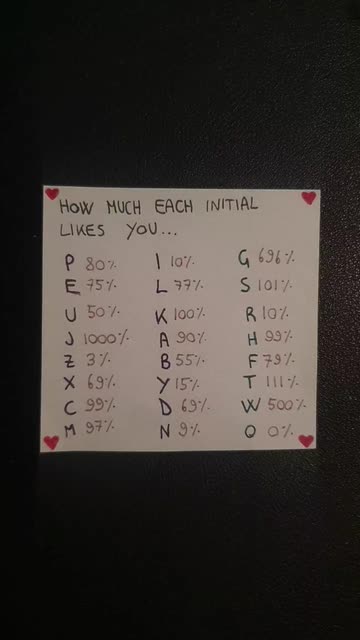 HOW MUCH EACH INITIAL
LIKES YOU...
P 80%
E 75%
U 50%
J 1000%
Z 3%
X 69%
C 99%
M 97%
I 10%
L 77%
K 100%
A 90%
B 55%
Y 15%
D 69%
N 9%
G 696%
S 101%
R 10%
H 99%
F 79%
T 111%
W 500%
O 0%